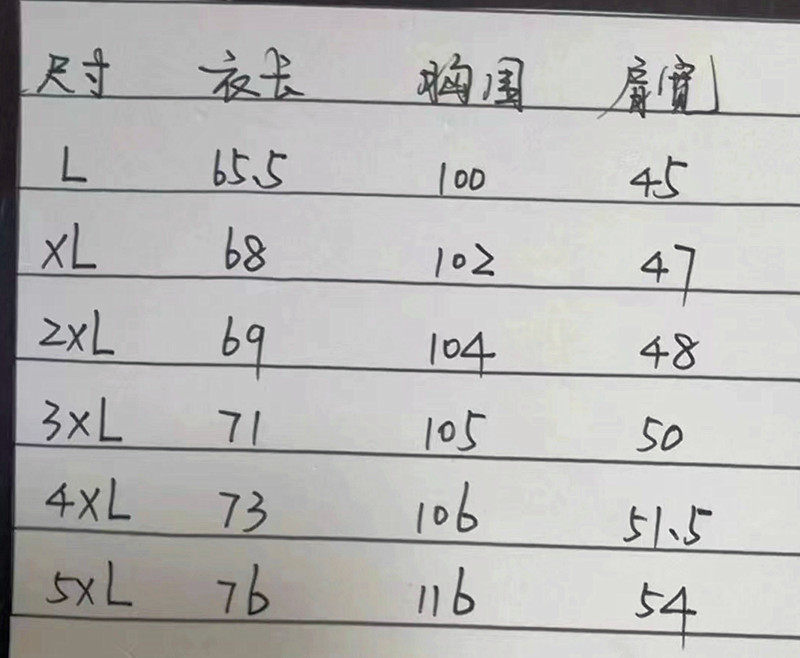 尺寸 衣长 胸围 肩宽
L 65.5 100 45
XL 68 102 47
2XL 69 104 48
3XL 71 105 50
4XL 73 106 51.5
5XL 76 116 54